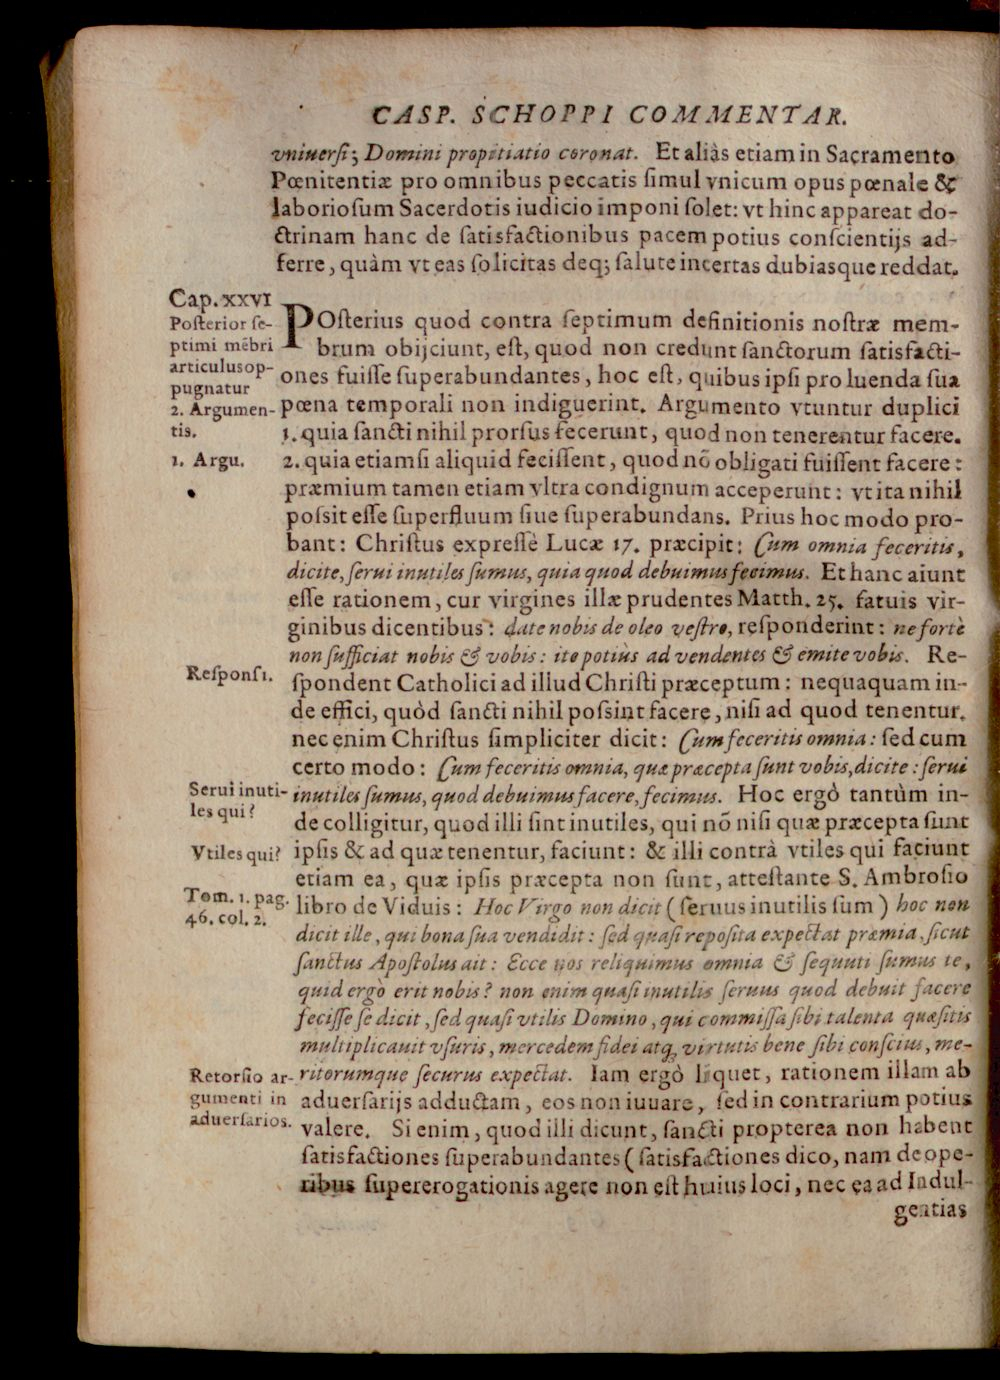 CASP. SCHOPPI COMMENTAR.
vniuersiꝫ Domini propitiatio coronat. Et aliàs etiam in Sacramento
Pœnitentiæ pro omnibus peccatis simul vnicum opus pœnale &
laboriosum Sacerdotis iudicio imponi solet: vt hinc appareat do-
ctrinam hanc de satisfactionibus pacem potius conscientijs ad-
ferre, quàm vt eas solicitas deqꝫ salute incertas dubiasque reddat.
Cap. XXVI
Posterior se-
ptimi mẽbri
articulus op-
pugnatur
2. Argumen-
tis.
1. Argu.
POsterius quod contra septimum definitionis nostræ mem-
brum obijciunt, est, quod non credunt sanctorum satisfacti-
ones fuisse superabundantes, hoc est, quibus ipsi pro luenda sua
pœna temporali non indiguerint. Argumento vtuntur duplici
1. quia sancti nihil prorsus fecerunt, quod non tenerentur facere.
2. quia etiamsi aliquid fecissent, quod nõ obligati fuissent facere:
præmium tamen etiam vltra condignum acceperunt: vt ita nihil
possit esse superfluum siue superabundans. Prius hoc modo pro-
bant: Christus expressè Lucæ 17. præcipit: Cum omnia feceritis,
dicite, serui inutiles sumus, quia quod debuimus fecimus. Et hanc aiunt
esse rationem, cur virgines illæ prudentes Matth. 25. fatuis vir-
ginibus dicentibus: date nobis de oleo vestro, responderint: ne fortè
non sufficiat nobis & vobis: ite potiùs ad vendentes & emite vobis. Re-
Respons1.
spondent Catholici ad illud Christi præceptum: nequaquam in-
de effici, quòd sancti nihil possint facere, nisi ad quod tenentur.
nec enim Christus simpliciter dicit: Cum feceritis omnia: sed cum
certo modo: Cum feceritis omnia, quæ præcepta sunt vobis, dicite: serui
Serui inuti-
les qui?
inutiles sumus, quod debuimus facere, fecimus. Hoc ergò tantùm in-
de colligitur, quod illi sint inutiles, qui nõ nisi quæ præcepta sunt
Vtiles qui?
ipsis & ad quæ tenentur, faciunt: & illi contrà vtiles qui faciunt
etiam ea, quæ ipsis præcepta non sunt, attestante S. Ambrosio
Tom. 1. pag.
46. col. 2.
libro de Viduis: Hoc Virgo non dicit (seruus inutilis sum) hoc non
dicit ille, qui bona sua vendidit: sed quasi reposita expectat præmia, sicut
sanctus Apostolus ait: Ecce nos reliquimus omnia & sequuti sumus te,
quid ergò erit nobis? non enim quasi inutilis seruus quod debuit facere
fecisse se dicit, sed quasi vtilis Domino, qui commissa sibi talenta quæsitis
multiplicauit vsuris, mercedem fidei atqꝫ virtutis bene sibi conscius, me-
Retorsio ar-
gumenti in
aduersarios.
ritorumque securus expectat. Iam ergò liquet, rationem illam ab
aduersarijs adductam, eos non iuuare, sed in contrarium potius
valere. Si enim, quod illi dicunt, sancti propterea non habent
satisfactiones superabundantes (satisfactiones dico, nam de ope-
ribus supererogationis agere non est huius loci, nec ea ad Indul-
gentias